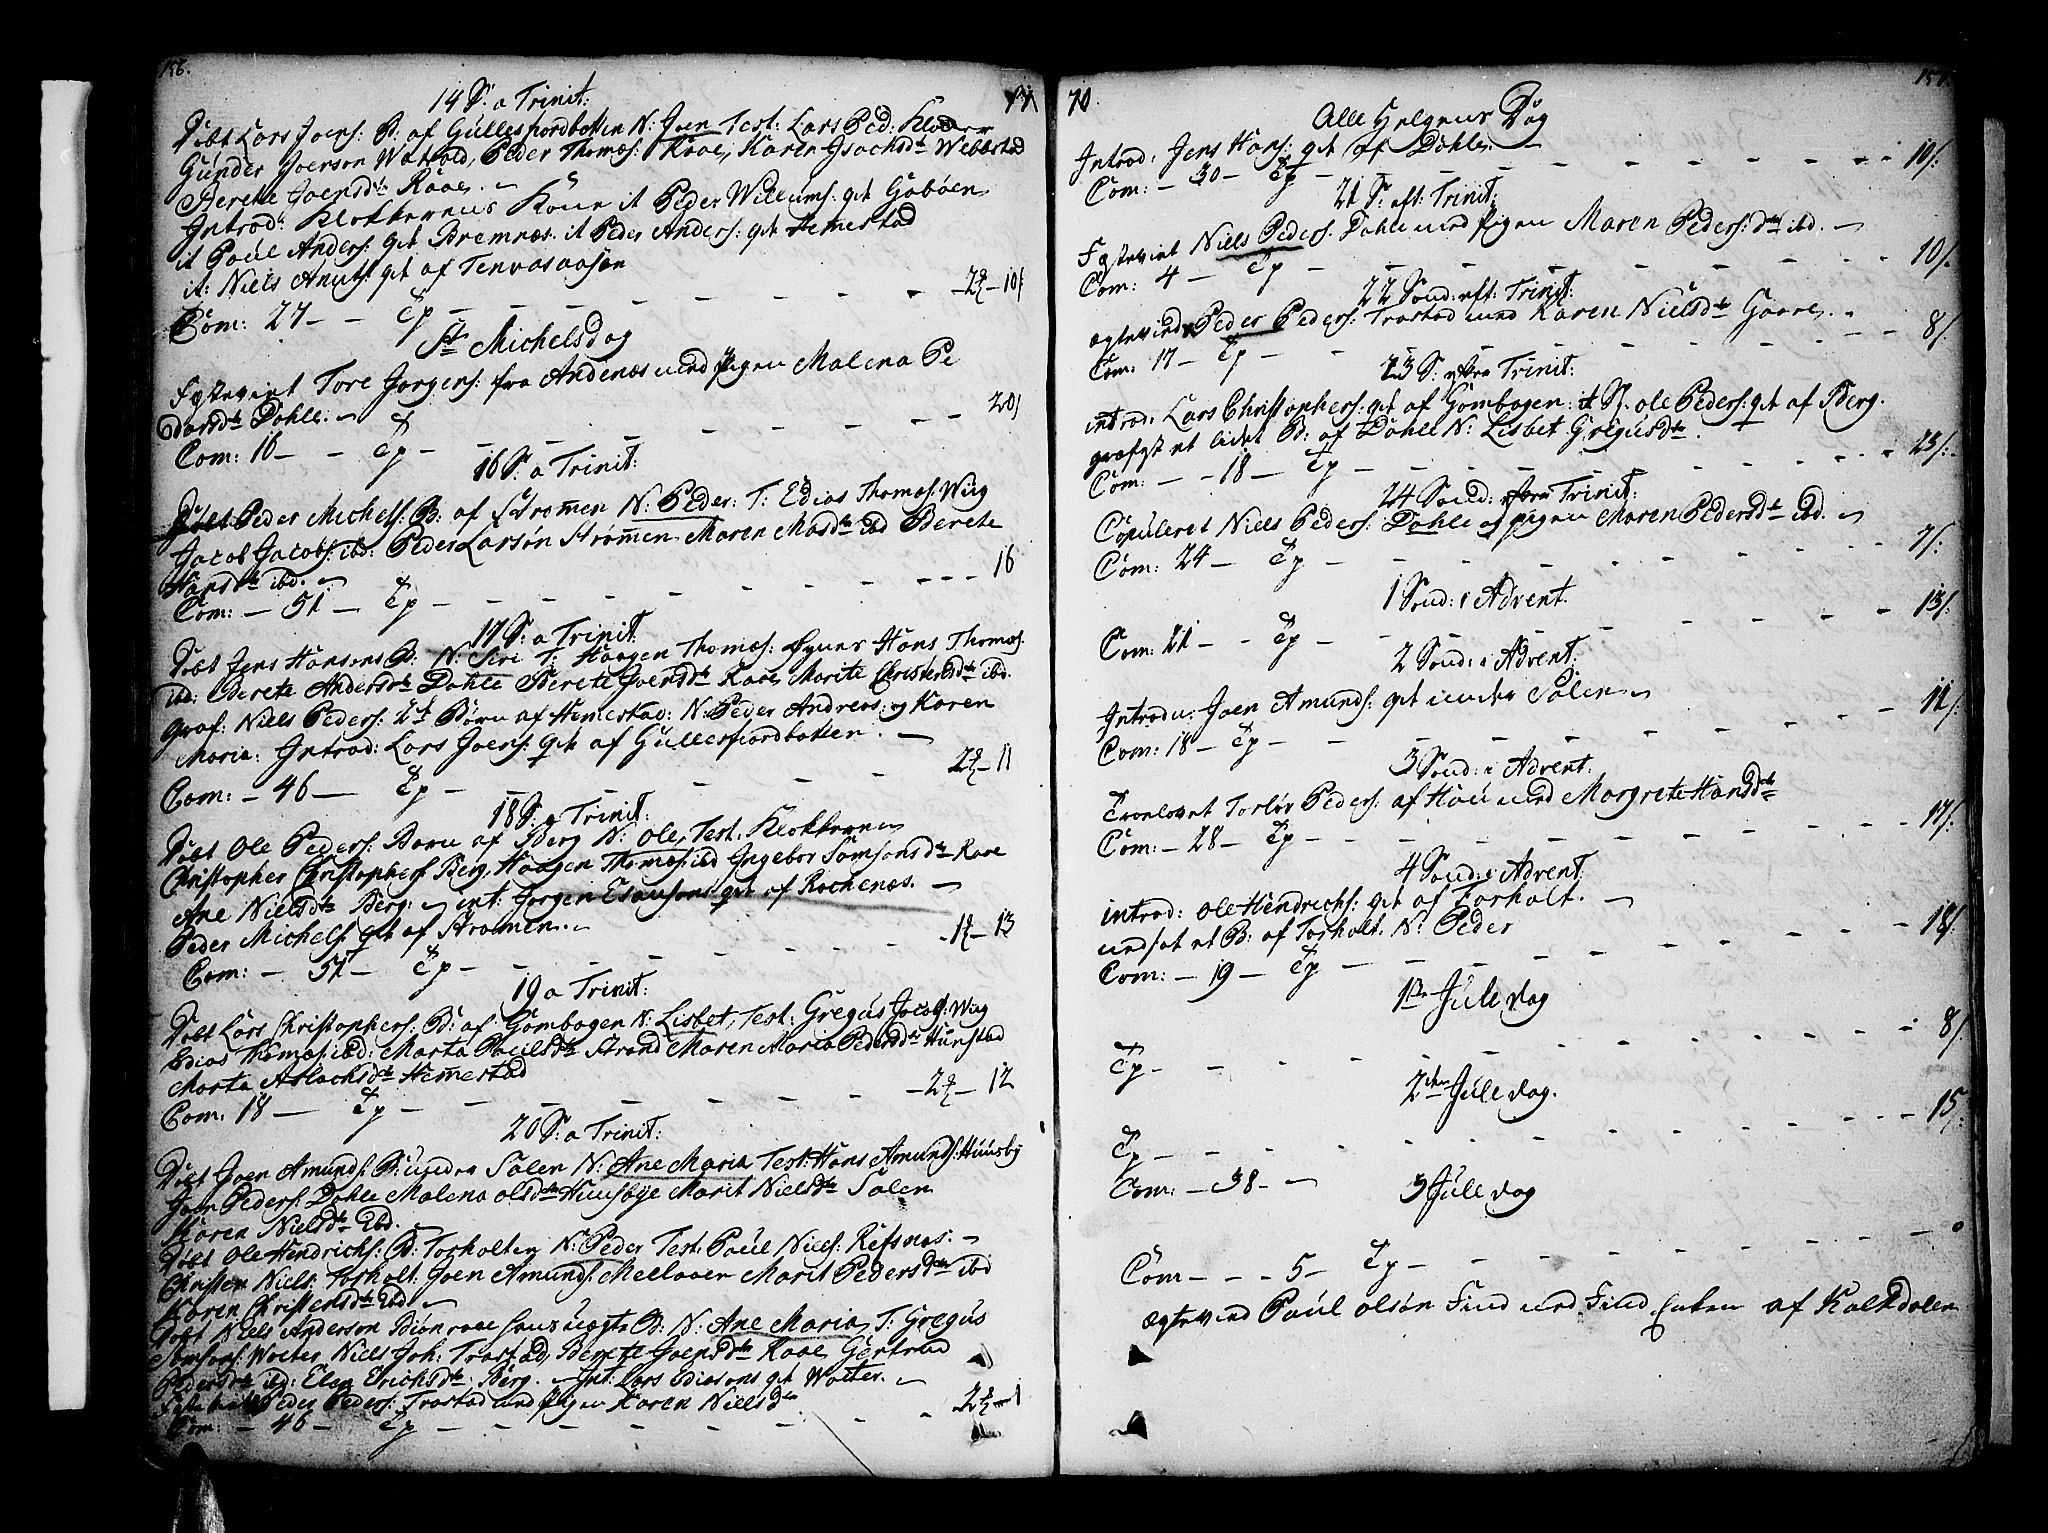 156.
14 S: a Trinit:
Döbt Lars Joens: B: af Gullesfiordbotten N: Joen Test: Lars Ped: Kloder
Gunder Joerson Watvold, Peder Thomæs: Raae, Karen Isachsdtr Webbestad
Berete Joensdtr Raae.
Introd: Klokkerens Kone it Peder Willums: qvt Gaböen
it Paul Anders: qvt Bremnæs. it Peder Anders: qvt Hemestad
it: Niels Knuts: qvt af Tenvasaasen
Com: 27 - - Tp - - - - - 2 - 10/
St Michelsdag
Fæstevint Tore Jorgens: fra Andenæs med Pigen Malena Pe
dersdtr Dahle. - 20/
Com: 16 - - Tp -
16 S: a Trinit:
Döbt Peder Michels: B: af Strömen N: Peder: T: Edias Thomæs: Wiig
Jacob Jacobs: ibd: Peder Larsön Strömen Maren Masdtr ibd Berete
Hansdtr ibd. - 16
Com: - 51 - Tp -
17 S: a Trinit:
Döbt Jens Hansens B: N: Siri T: Haagen Thomæs: Hans Thomæs:
ibd: Berete Andersdtr Dahle Berete Joensdtr Raae Marite Christensdtr ibd.
Graf: Niels Peders: 2de Börn af Hemestad: N: Peder Andreas: og Karen
Maria: Introd: Lars Joens: qvt af Gullesfiordbotten.
Com: - 46 - Tp - - - 2 - 11
18 S: a Trinit:
Döbt Ole Peders: Barn af Berg N: Ole, Test: Klokkeren
Christopher Christophers: Berg, Haagen Thomæs: ibd Ingebor Samsonsdtr Raae
Ane Nielsdtr Berg: int: Jorgen Esausons qvt af Rochenæs.
Peder Michels: qvt af Strömen. - 1 - 13
Com: - 57 - Tp -
19 a Trinit:
Döbt Lars Christophers: B: af Gombogen N: Lisbet, Test: Gregus Jacobs: Wiig
Edias Thomæs: ibd: Marta Paulsdtr Strand Maren Maria Pedersdtr Hunstad
Marta Aslachsdtr Hemestad
Com: 18 - Tp - - - 2 - 12
20 S: a Trinit:
Döbt Joen Amunds: B: under Salen N: Ane Maria Test: Hans Amunds: Huusby
Joen Peders: Dahle Malena olsdtr Huusbye Marit Nielsdtr Salen
Karen Nielsdtr Ibd.
Döbt Ole Hendrichs: B: Torholten N: Peder Test: Paul Niels: Refsnæs. -
Christen Niels: Torholt: Joen Amunds: Mellaaen Marit Pedersdtr ibd
Karen Christensdtr Ibd.
Döbt Niels Anderson Biönraae hans uægte B: N: Ane Maria T: Gregus
Samsons: Wolter Niels Joh: Trastad, Berete Joensdtr Raae, Gertrud
Pedersdtr ibd: Elen Erichsdtr Berg. - Int: Lars Ediasons qvt Wolter.
Peder Peders: Trastad med Pigen Karen Nielsdtr
Com: - 46 - Tp -
70. 157.
Alle Helgens Dag
Introd: Jens Hans: qvt af Dahle. - 10/:
Com: - 30 - Tp -
21 S: eft: Trinit:
Fæstevint Niels Peders: Dahle med pigen Maren Peders: dtr ibd. -
Com: 4 - Tp - 10/.
22 Sönd: eft: Trinit:
ægtevied Peder Peders: Trastad med Karen Nielsdtr Gaare.
Com: 17 - Tp - 8/.
23 S: efter Trinit:
introd: Lars Christophers: qvt af Gombogen: it S. Ole Peders: qvt af Berg.
græfst et lidet B: af Dahle N: Lisbet Gregusdtr.
Com: - - 18 - Tp - 23/:
24 Sönd: efter Trinit:
Copuleret Niels Peders: Dahle og pigen Maren Pedersdtr ibd.
Com: 24 - Tp - 7/:
1 Sönd: i Advent.
Com: 21 - Tp - 13/:
2 Sönd: i Advent:
Introdu: Joen Amunds: qvt under Salen
Com: 18 - Tp - 11/:
3 Sönd: i Advent:
Troelovet Torlöv Peders: af Hou med Margrete Hansdtr
Com: - 28 - Tp - 17/:
4 Sönd: i Advent:
introd: Ole Hendrichs: qvt af Torholt. -
nedsat et B: af Torholt: N: Peder
Com: - 19 - Tp - 18/:
1ste Juledag
Tp - 8/:
2den Juledag.
Tp - 15/:
Com: - 38 -
3 Juledag
Com - - - 5 - Tp -
Ægtevied Paul olsön Find med Find af Kalkdalen